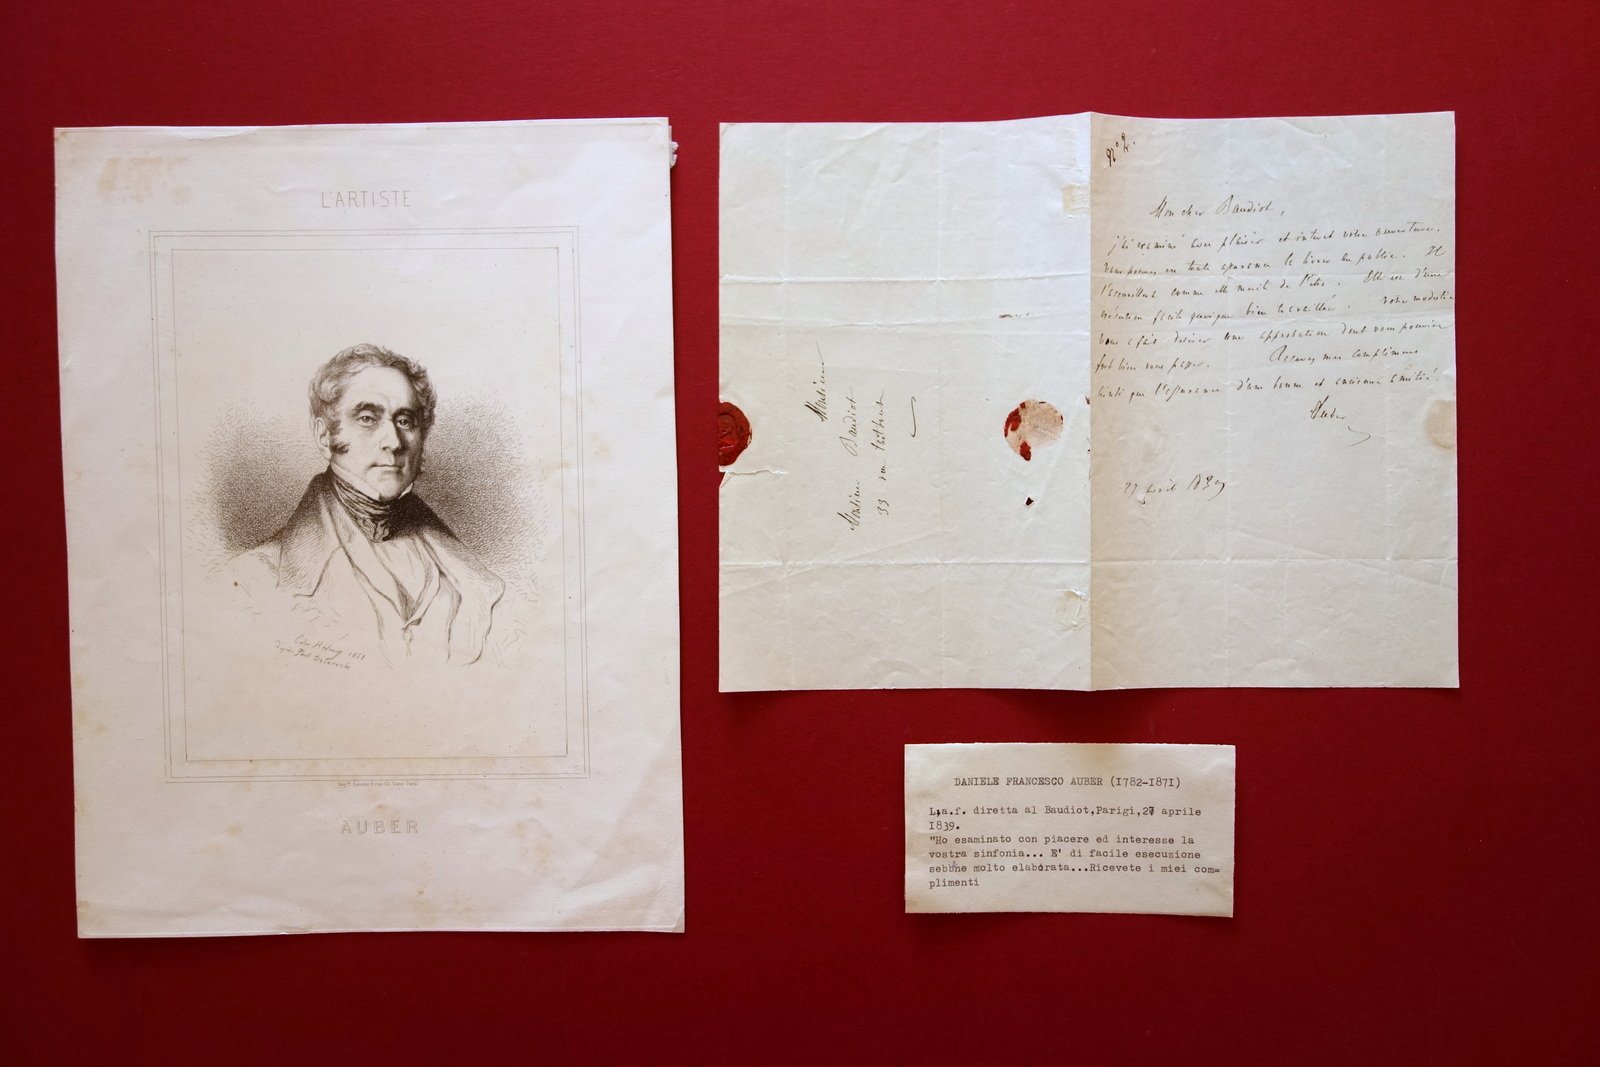 L'ARTISTE
d'après Paul Delaroche
AUBER
Monsieur
Monsieur Baudiot
33 rue
n° 2.
Mon cher Baudiot,
j'ai examiné avec plaisir et intérêt votre ouverture.
vous pouvez en toute assurance la livrer au public. Il
l'accueillera comme elle mérite de l'être. Elle est d'une
exécution facile quoique bien travaillée. votre modestie
vous a fait désirer une approbation dont vous pouviez
fort bien vous passer. Recevez mes complimens
ainsi que l'assurance d'une bonne et ancienne amitié.
Auber
27 avril 1839
DANIELE FRANCESCO AUBER (1782-1871)
L,a.f. diretta al Baudiot,Parigi,27 aprile
1839.
"Ho esaminato con piacere ed interesse la
vostra sinfonia... E' di facile esecuzione
sebbne molto elaborata...Ricevete i miei com=
plimenti